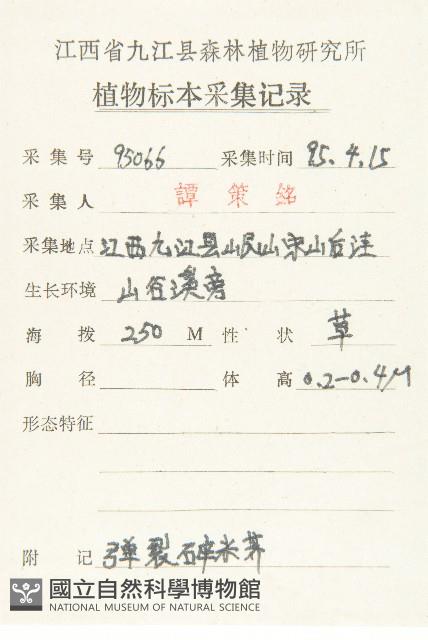 江西省九江县森林植物研究所
植物标本采集记录
采集号 95066 采集时间 95.4.15
采集人 譚策銘
采集地点 江西九江县岷山宋山后洼
生长环境 山谷溪旁
海拨 250 M 性状 草
胸径 体高 0.2-0.4M
形态特征
附记 弹裂碎米荠
國立自然科學博物館
NATIONAL MUSEUM OF NATURAL SCIENCE